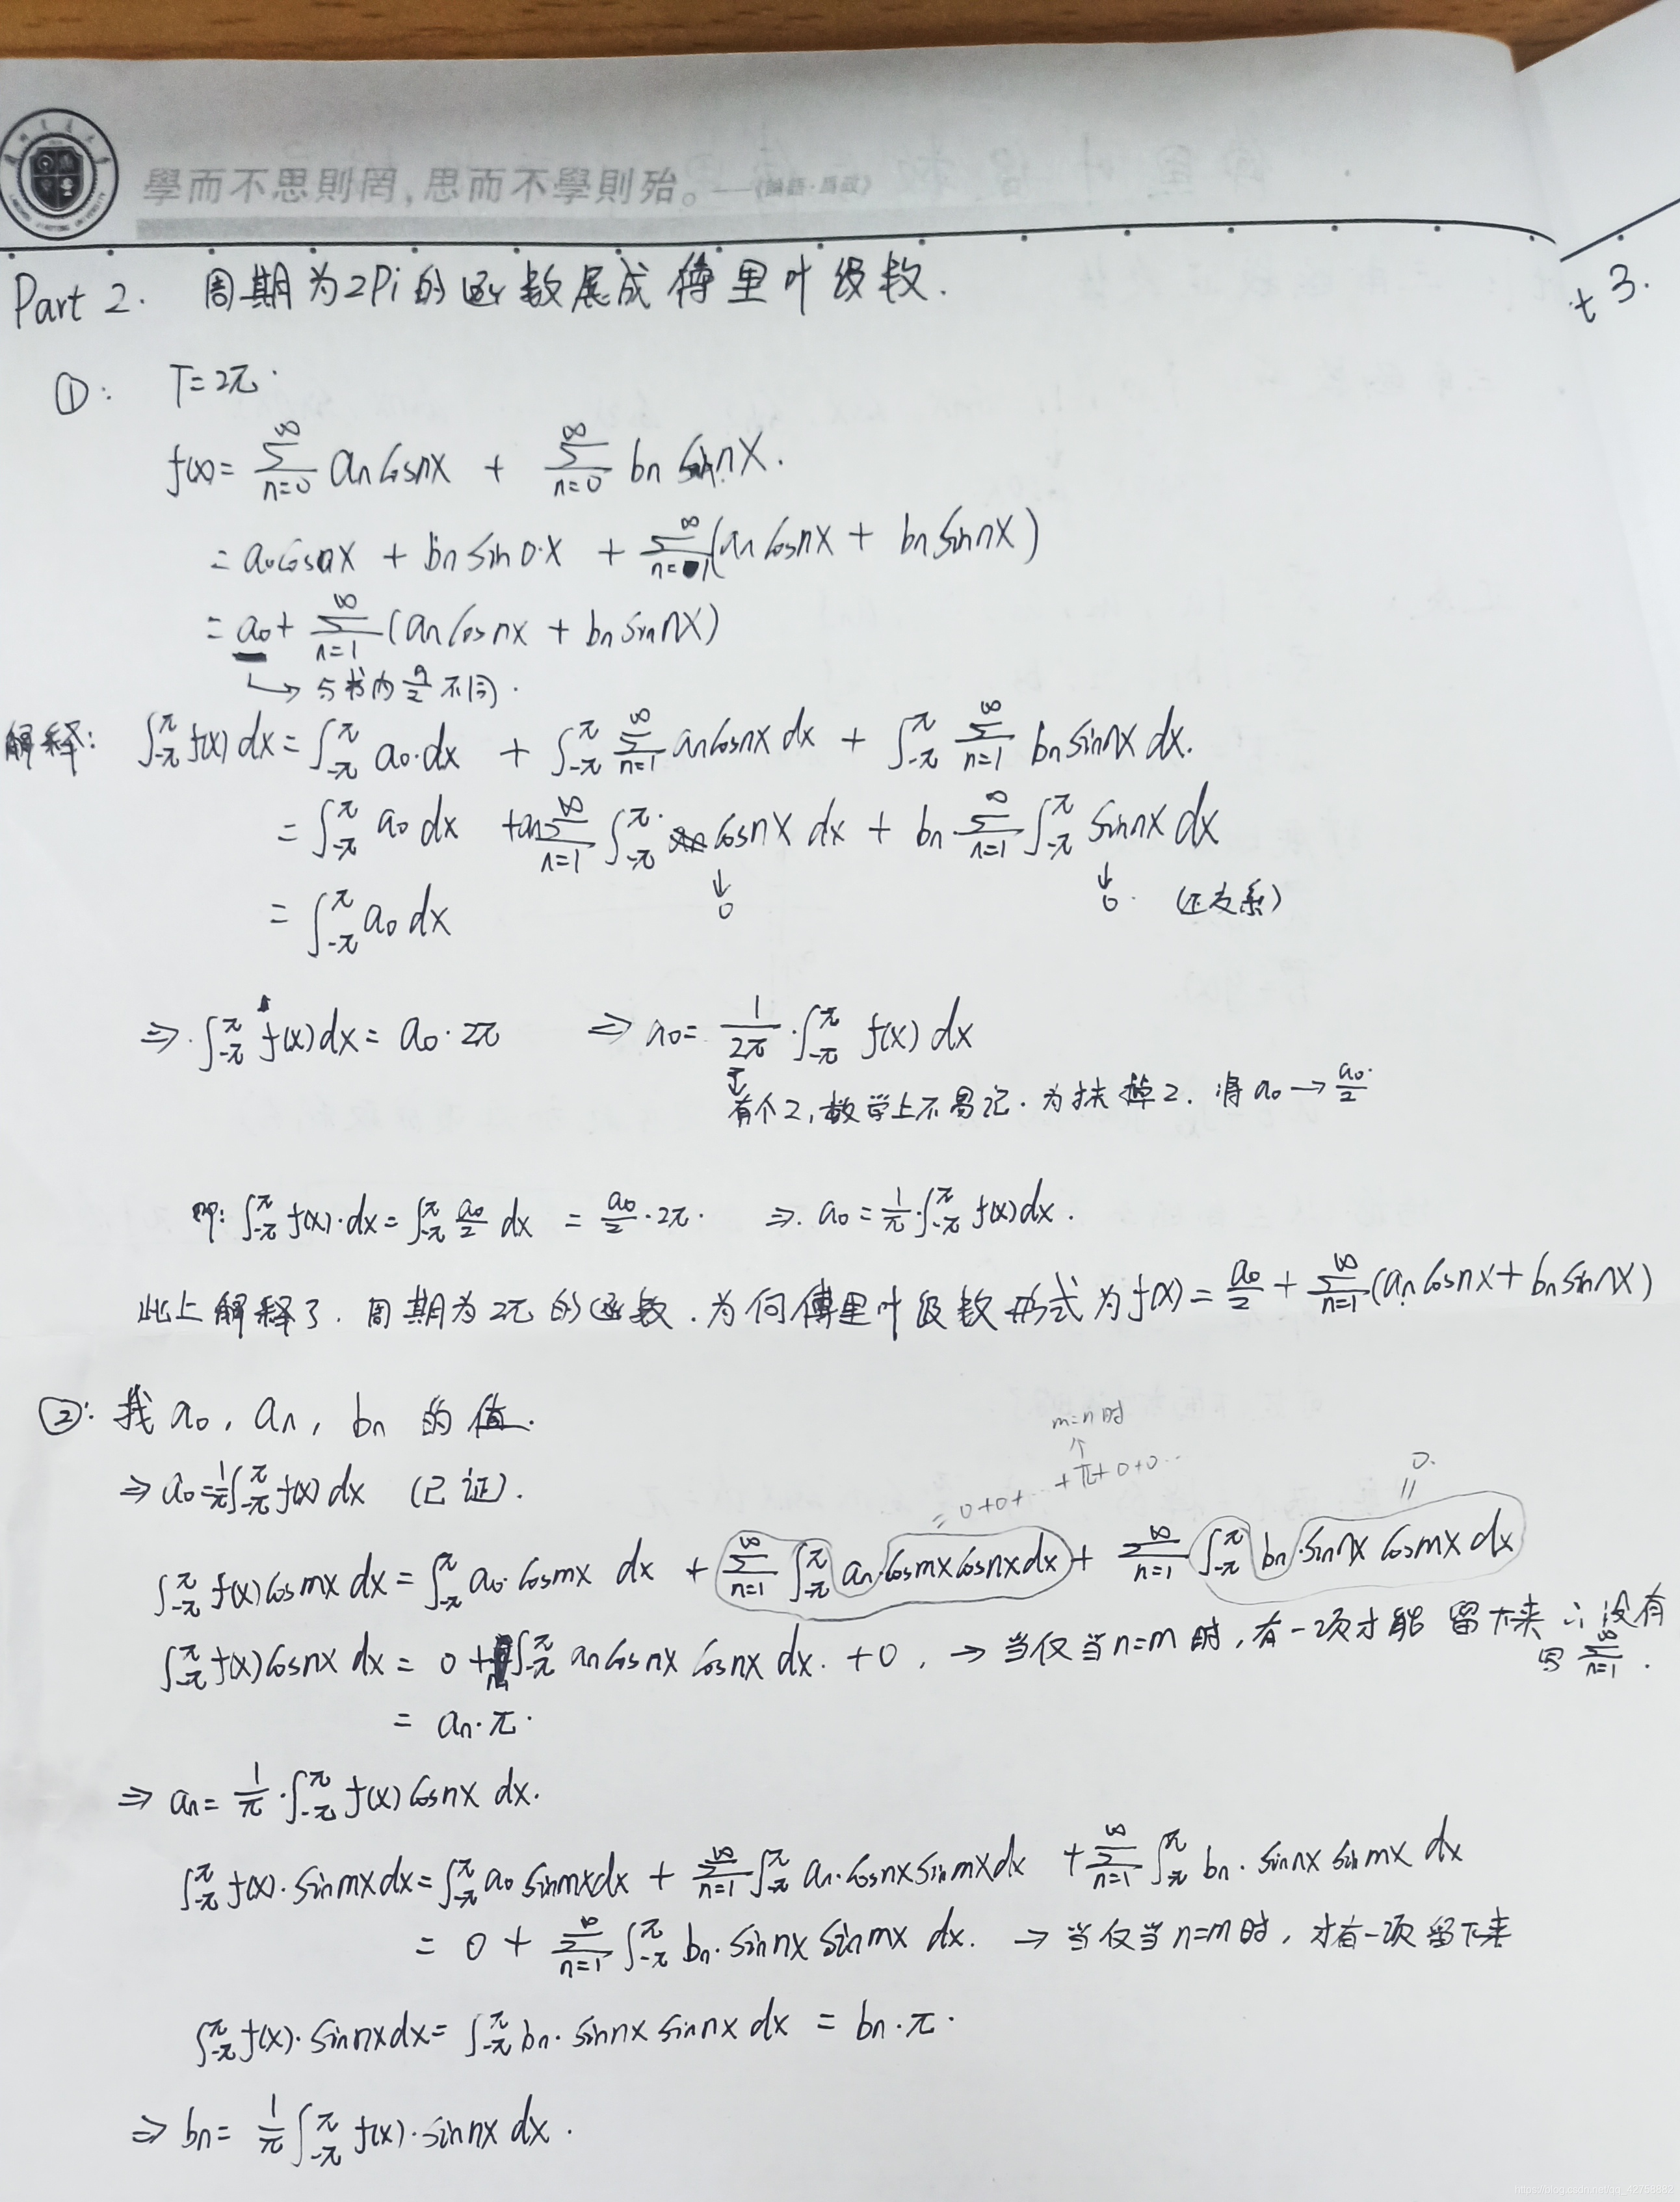 學而不思則罔，思而不學則殆。——《論語·爲政》
Part 2. 周期为2Pi的函数展成傅里叶级数.
t 3.
①: T=2π.
f(x)= ∑_{n=0}^{∞} an cosnx + ∑_{n=0}^{∞} bn sinnx.
= a0cos0x + bn sin0·x + ∑_{n=1}^{∞}(an cosnx + bn sinnx)
= a0 + ∑_{n=1}^{∞}(an cosnx + bn sinnx)
↳ 与书内 a/2 不同.
解释: ∫_{-π}^{π} f(x) dx = ∫_{-π}^{π} a0·dx + ∫_{-π}^{π} ∑_{n=1}^{∞} an cosnx dx + ∫_{-π}^{π} ∑_{n=1}^{∞} bn sinnx dx.
= ∫_{-π}^{π} a0 dx + an ∑_{n=1}^{∞} ∫_{-π}^{π} cosnx dx + bn·∑_{n=1}^{∞} ∫_{-π}^{π} sinnx dx
↓ 0 ↓ 0. (正交系)
= ∫_{-π}^{π} a0 dx
⇒ ∫_{-π}^{π} f(x)dx = a0·2π ⇒ a0 = 1/2π · ∫_{-π}^{π} f(x) dx
↓ 有个2, 数学上不易记. 为抹掉2. 将 a0 → a0/2
即: ∫_{-π}^{π} f(x)·dx = ∫_{-π}^{π} a0/2 dx = a0/2 · 2π. ⇒ a0 = 1/π·∫_{-π}^{π} f(x)dx.
此上解释了. 周期为2π的函数. 为何傅里叶级数形式为 f(x) = a0/2 + ∑_{n=1}^{∞}(an cosnx + bn sinnx)
②: 找 a0, an, bn 的值.
m=n时
↑
= 0+0+… +π+0+0… 0. ||
⇒ a0 = 1/π ∫_{-π}^{π} f(x) dx (已证).
∫_{-π}^{π} f(x) cosmx dx = ∫_{-π}^{π} a0·cosmx dx + ∑_{n=1}^{∞} ∫_{-π}^{π} an·cosmx cosnx dx + ∑_{n=1}^{∞} ∫_{-π}^{π} bn·sinnx cosmx dx
∫_{-π}^{π} f(x) cosnx dx = 0 + ∫_{-π}^{π} an cosnx cosnx dx. + 0. → 当仅当n=m时, 有一项才能留下来 ∴ 没有
写 ∑_{n=1}^{∞}.
= an·π.
⇒ an = 1/π·∫_{-π}^{π} f(x) cosnx dx.
∫_{-π}^{π} f(x)·sinmxdx = ∫_{-π}^{π} a0 sinmxdx + ∑_{n=1}^{∞} ∫_{-π}^{π} an·cosnx sinmxdx + ∑_{n=1}^{∞} ∫_{-π}^{π} bn·sinnx sinmx dx
= 0 + ∑_{n=1}^{∞} ∫_{-π}^{π} bn·sinnx sinmx dx. → 当仅当n=m时, 才有一项留下来
∫_{-π}^{π} f(x)·sinnxdx = ∫_{-π}^{π} bn·sinnx sinnx dx = bn·π.
⇒ bn = 1/π ∫_{-π}^{π} f(x)·sinnx dx.